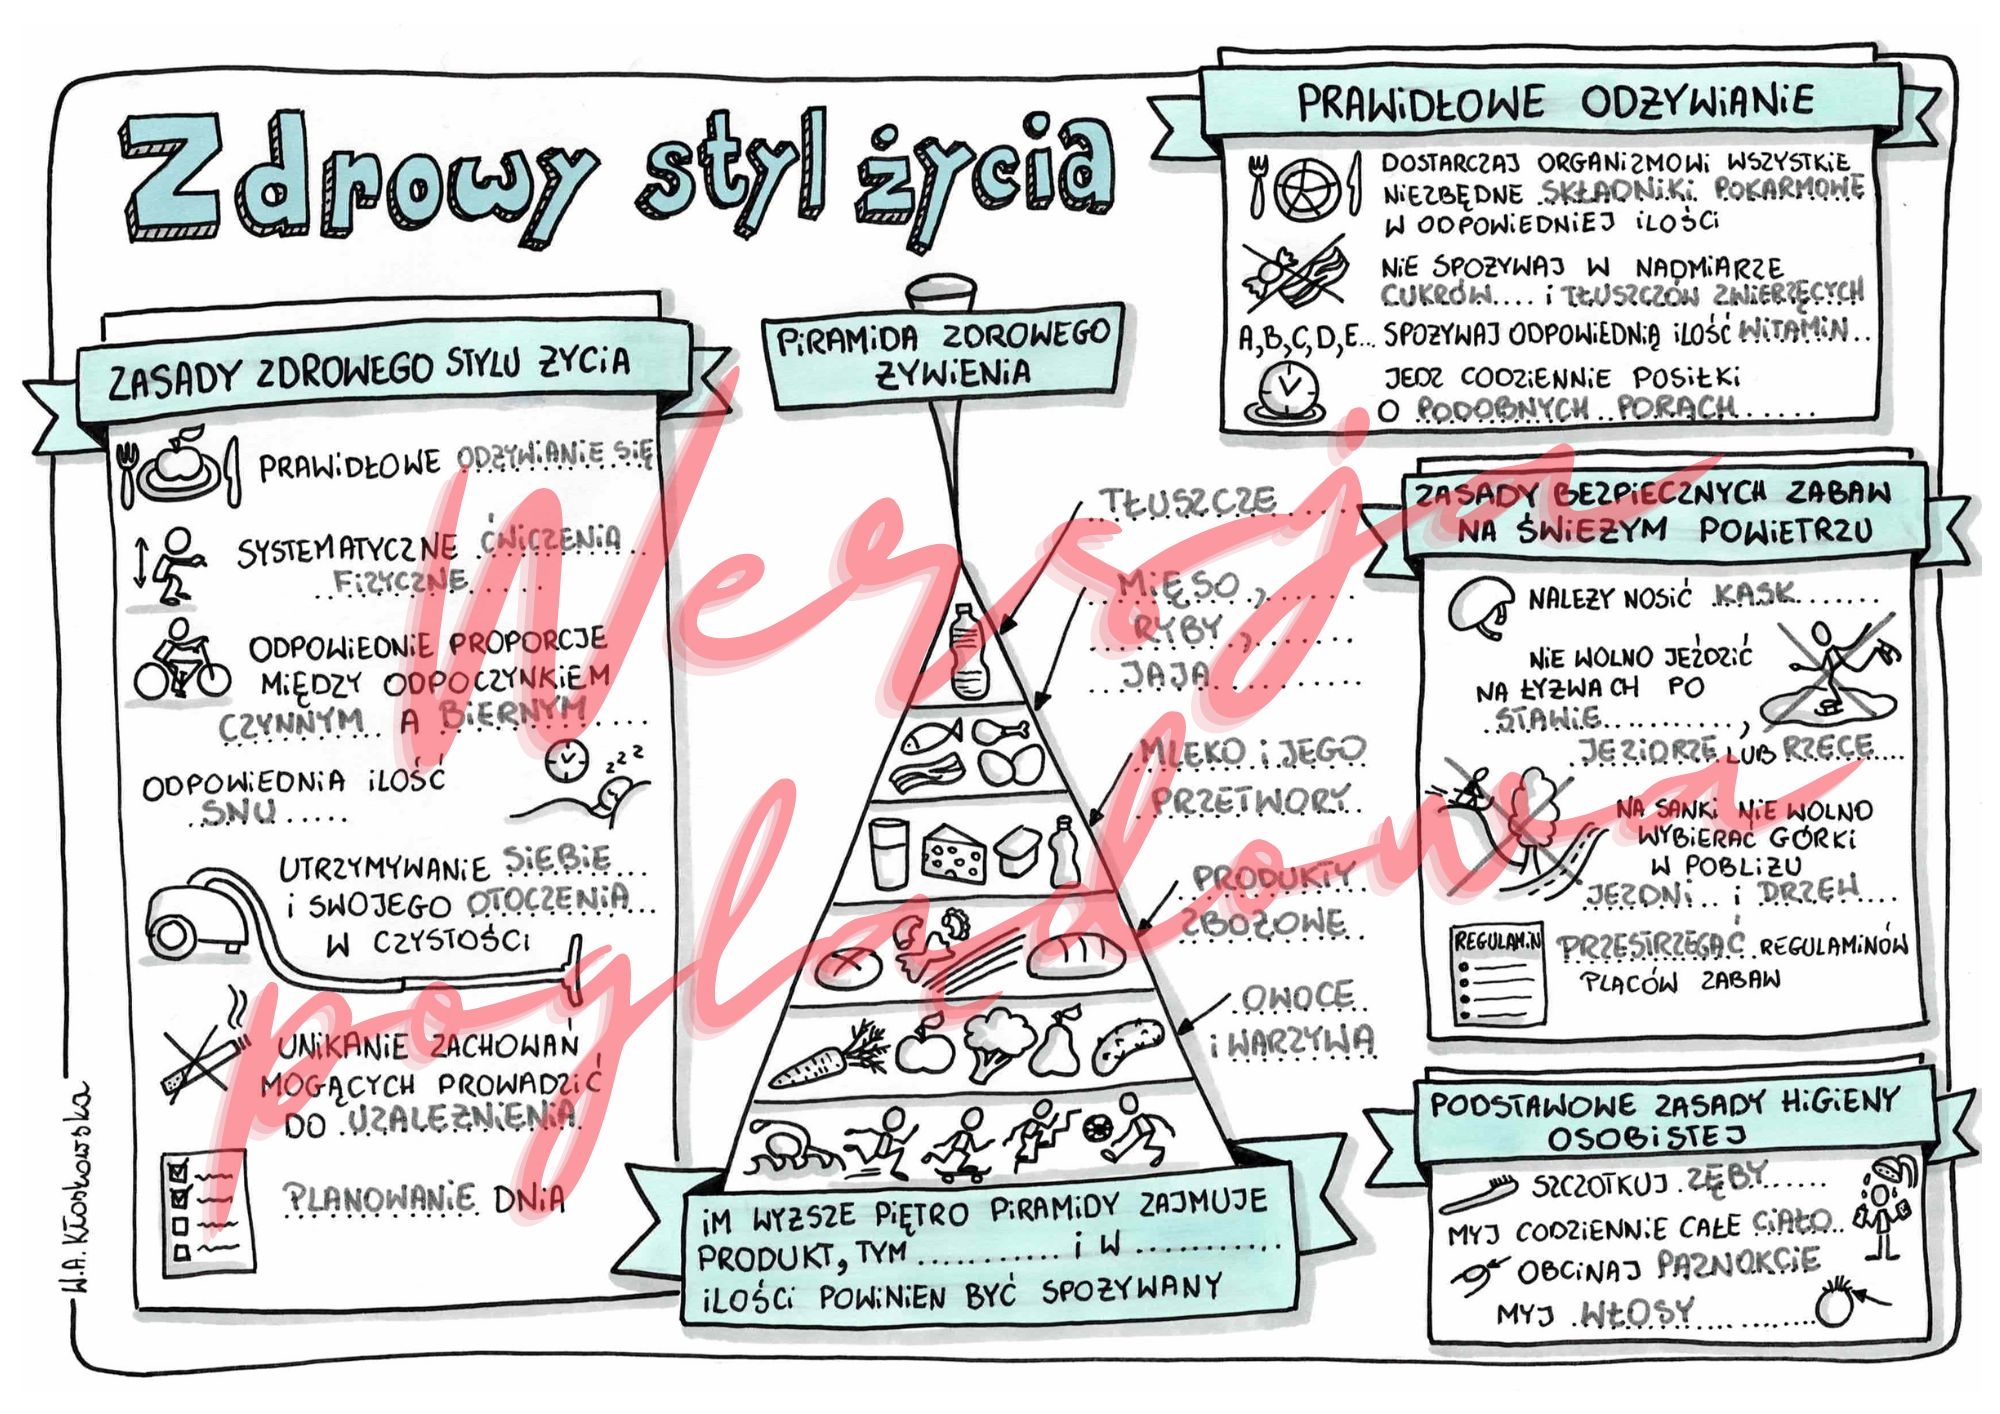 Zdrowy styl życia
ZASADY ZDROWEGO STYLU ŻYCIA
PRAWIDŁOWE ODŻYWIANIE SIĘ
SYSTEMATYCZNE ĆWICZENIA
FIZYCZNE
ODPOWIEDNIE PROPORCJE
MIĘDZY ODPOCZYNKIEM
CZYNNYM A BIERNYM
ODPOWIEDNIA ILOŚĆ
SNU
zzz
UTRZYMYWANIE SIEBIE
I SWOJEGO OTOCZENIA
W CZYSTOŚCI
UNIKANIE ZACHOWAŃ
MOGĄCYCH PROWADZIĆ
DO UZALEŻNIENIA
PLANOWANIE DNIA
W.A. Kłoskowska
PIRAMIDA ZDROWEGO
ŻYWIENIA
TŁUSZCZE
MIĘSO,
RYBY,
JAJA
MLEKO I JEGO
PRZETWORY
PRODUKTY
ZBOŻOWE
OWOCE
I WARZYWA
IM WYŻSZE PIĘTRO PIRAMIDY ZAJMUJE
PRODUKT, TYM ........... I W ............
ILOŚCI POWINIEN BYĆ SPOŻYWANY
PRAWIDŁOWE ODŻYWIANIE
DOSTARCZAJ ORGANIZMOWI WSZYSTKIE
NIEZBĘDNE SKŁADNIKI POKARMOWE
W ODPOWIEDNIEJ ILOŚCI
NIE SPOŻYWAJ W NADMIARZE
CUKRÓW.... I TŁUSZCZÓW ZWIERZĘCYCH
A, B, C, D, E... SPOŻYWAJ ODPOWIEDNIĄ ILOŚĆ WITAMIN..
JEDZ CODZIENNIE POSIŁKI
O PODOBNYCH PORACH......
ZASADY BEZPIECZNYCH ZABAW
NA ŚWIEŻYM POWIETRZU
NALEŻY NOSIĆ KASK.......
NIE WOLNO JEŹDZIĆ
NA ŁYŻWACH PO
STAWIE..........,
JEZIORZE LUB RZECE....
NA SANKI NIE WOLNO
WYBIERAĆ GÓRKI
W POBLIŻU
JEZDNI.. I DRZEW....
REGULAMIN
PRZESTRZEGAĆ REGULAMINÓW
PLACÓW ZABAW
PODSTAWOWE ZASADY HIGIENY
OSOBISTEJ
SZCZOTKUJ ZĘBY......
MYJ CODZIENNIE CAŁE CIAŁO..
OBCINAJ PAZNOKCIE
MYJ WŁOSY............
Wersja
poglądowa